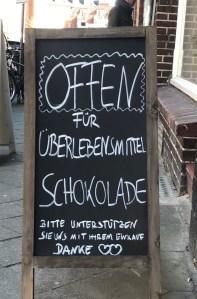 OFFEN
FÜR
ÜBERLEBENSMITTEL
SCHOKOLADE
BITTE UNTERSTÜTZEN
SIE UNS MIT IHREM EINKAUF
DANKE ♡♡